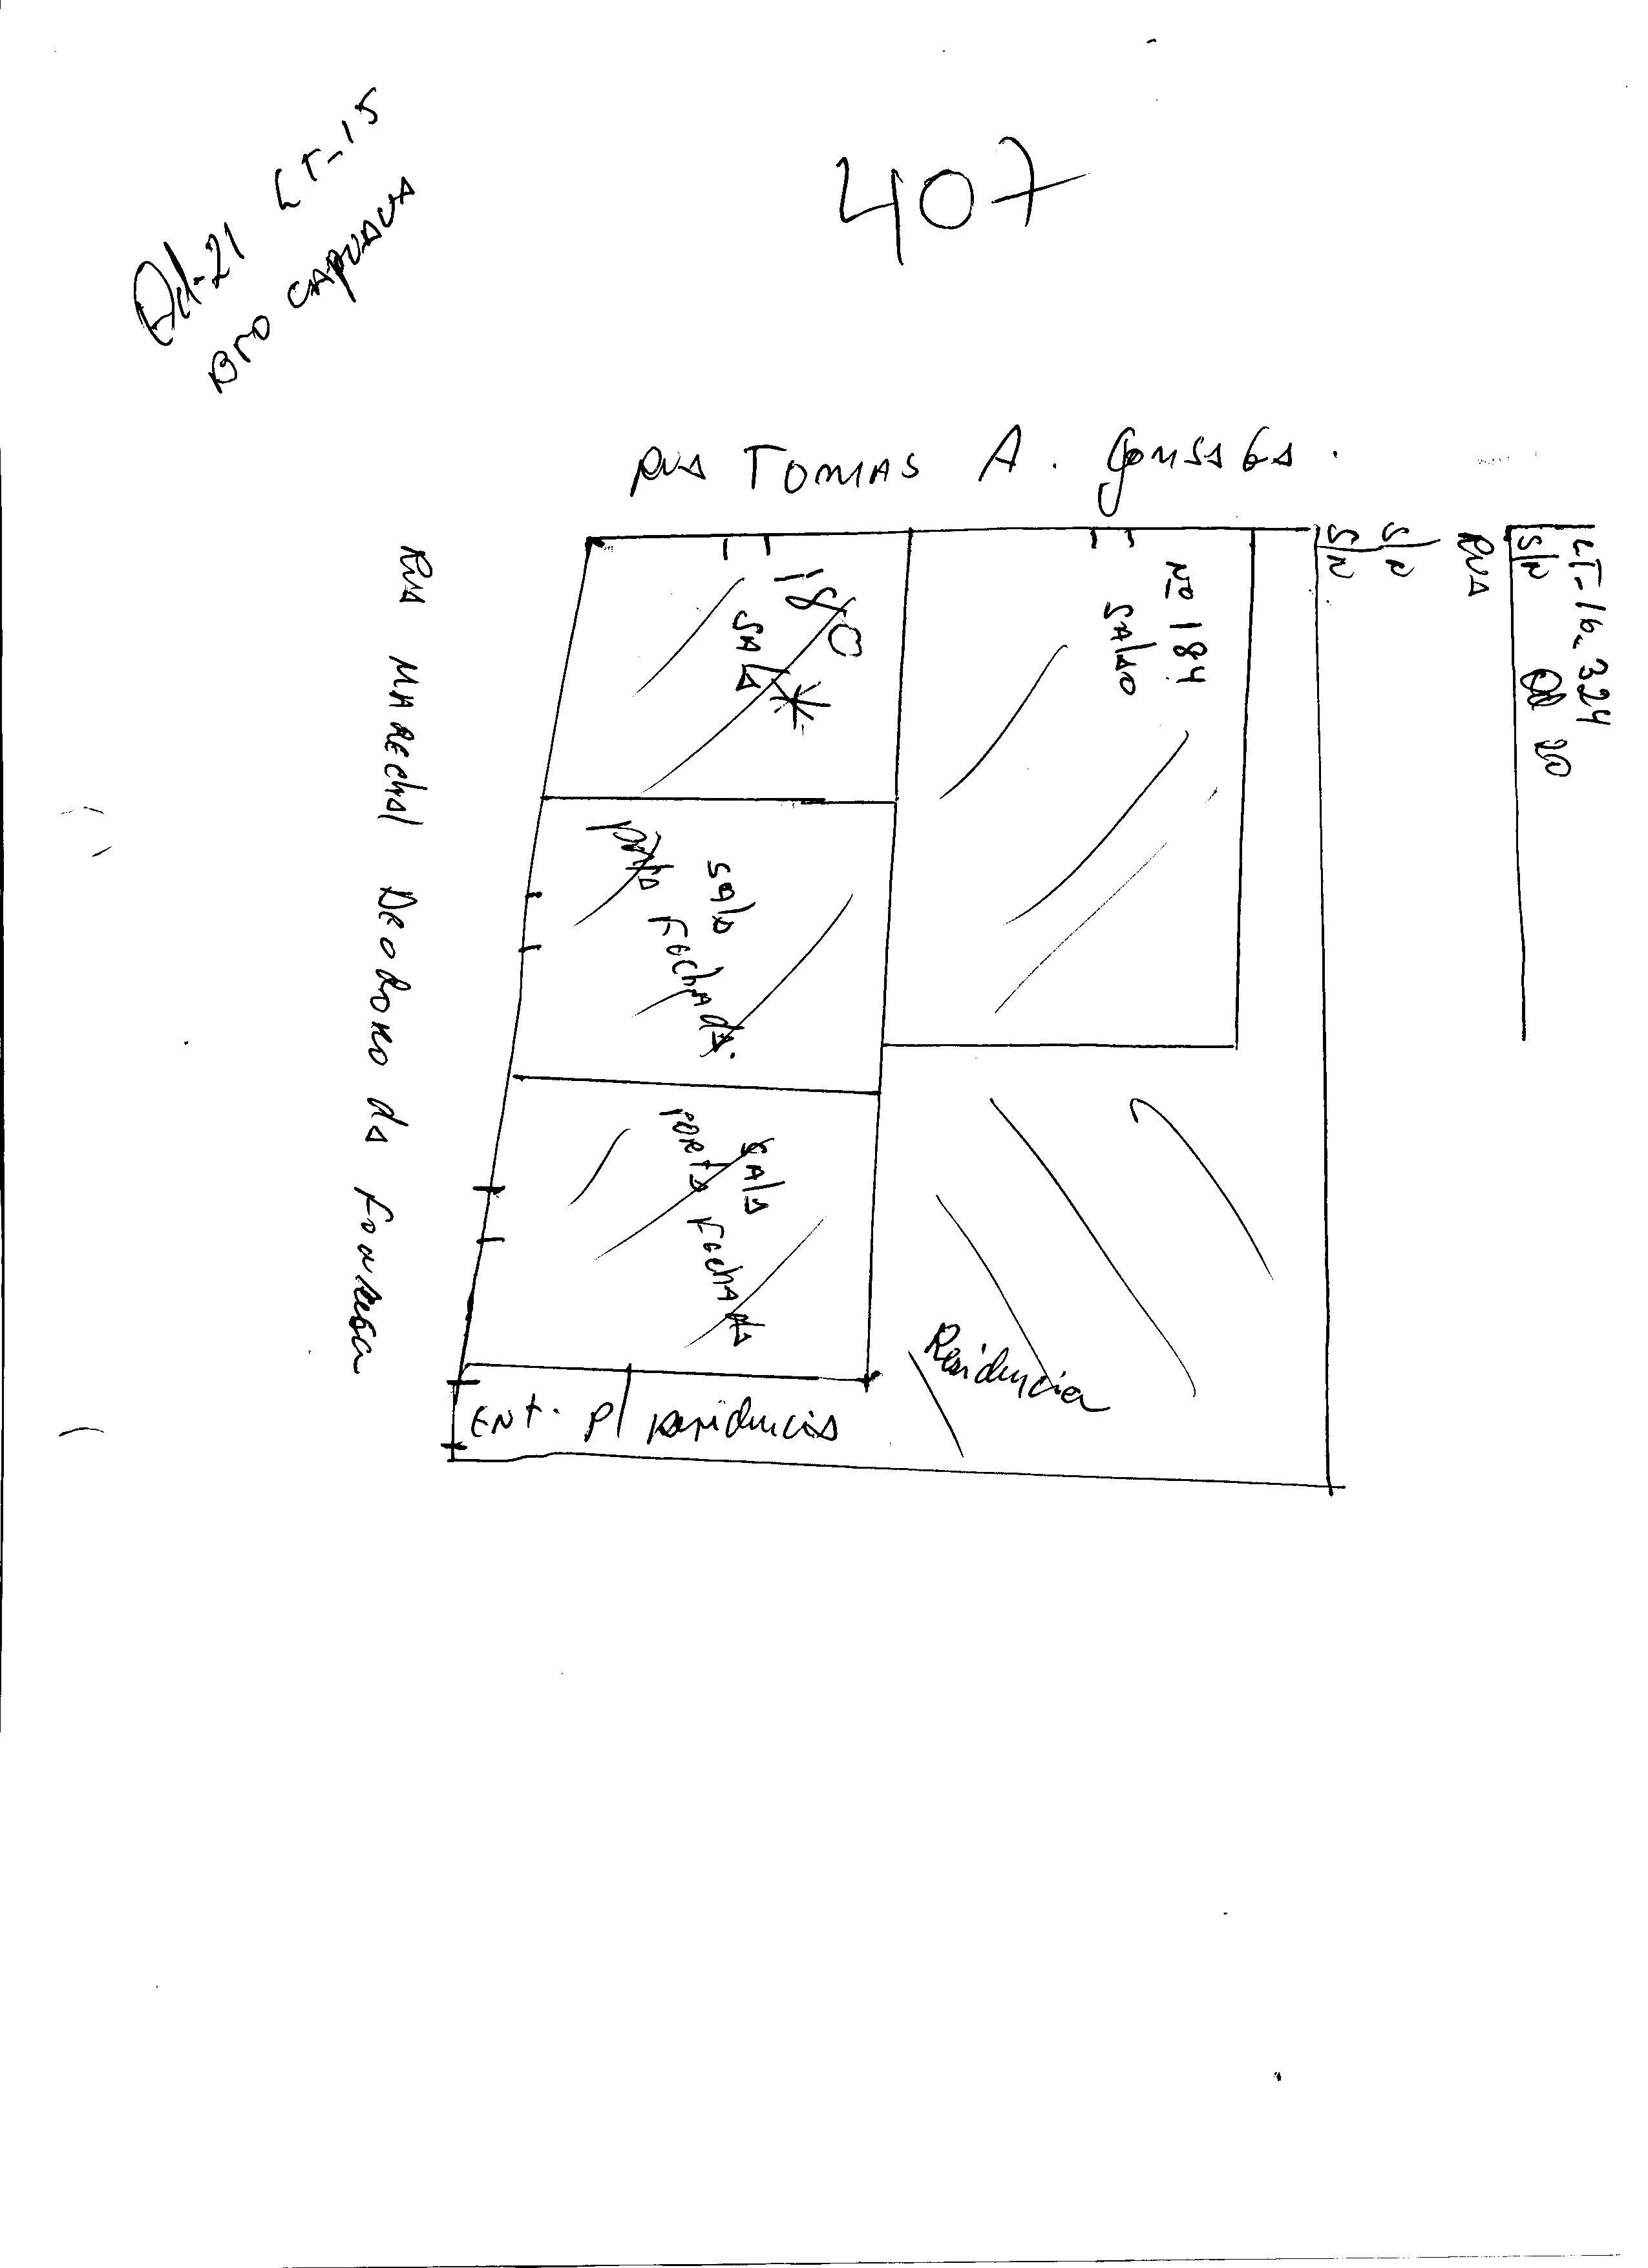 Qd-21 LT-15
BrO CAPUAVA
407
RUA TOMAS A. GONSAGA.
RUA MARECHAL DEODORO da Fonseca
180
SALA
Nº 184
SALAO
S/N
S/N
RUA
S/N
LT-16 324
Qd 20
SALA
porta FECHAda.
SALA
PORTA FECHAda
Residencia
ENt. p/ residencia